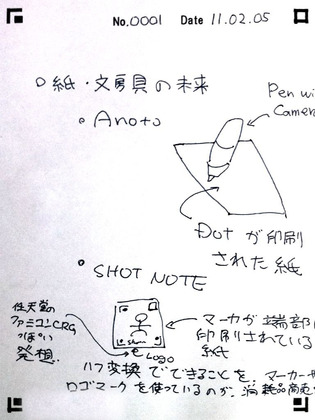 No.0001 Date 11.02.05
□ 紙・文房具の未来
Pen wi
Camer
。Anoto
Dot が印刷
された紙
。SHOT NOTE
任天堂の
ファミコンCRG
っぽい
発想.
マーカが端部に
印刷されている
紙
Logo
ハフ変換でできることを, マーカーや
ロゴマークを使っているのが, 消耗品商売